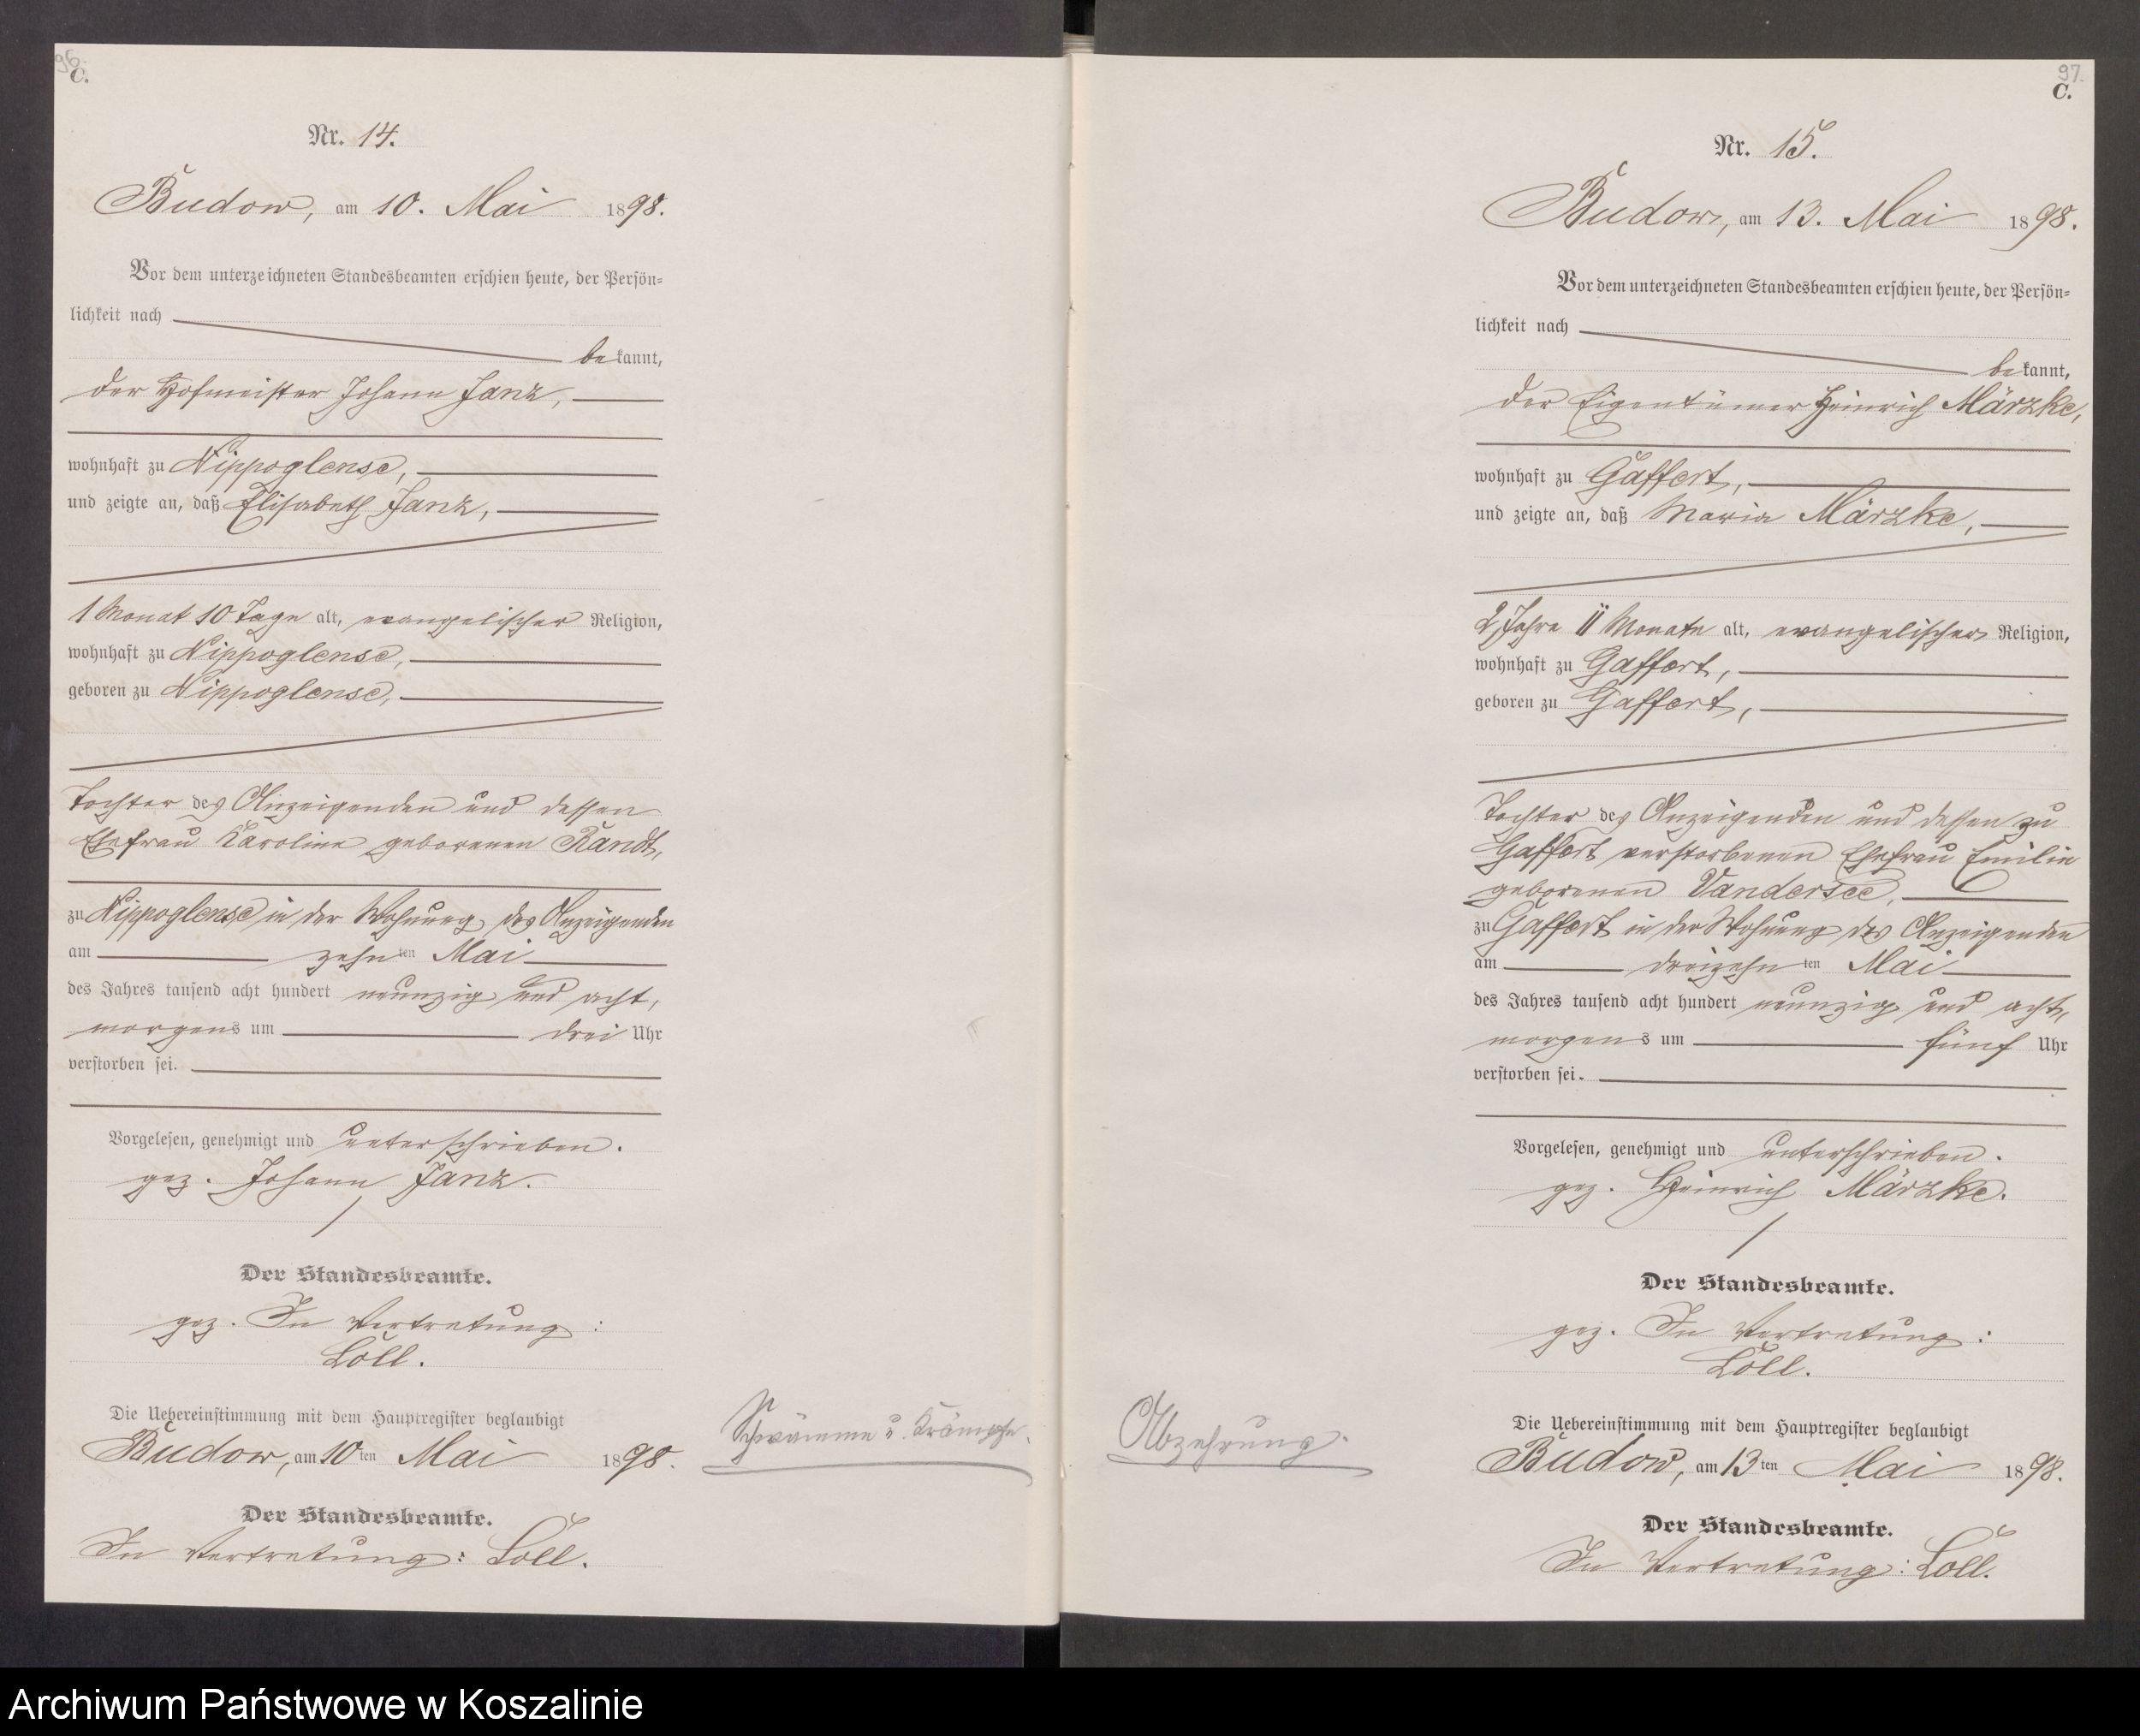 96.
C.
Nr. 14.
Budow, am 10. Mai 1898.
Vor dem unterzeichneten Standesbeamten erschien heute, der Persön=
lichkeit nach
bekannt,
der Hofmeister Johann Janz,
wohnhaft zu Nippoglense,
und zeigte an, daß Elisabeth Janz,
1 Monat 10 Tage alt, evangelischer Religion,
wohnhaft zu Nippoglense,
geboren zu Nippoglense,
Tochter des Anzeigenden und dessen
Ehefrau Karoline geborenen Randt,
zu Nippoglense in der Wohnung des Anzeigenden
am zehnten Mai
des Jahres tausend acht hundert neunzig und acht,
morgens um drei Uhr
verstorben sei.
Vorgelesen, genehmigt und unterschrieben.
gez. Johann Janz.
Der Standesbeamte.
gez. In Vertretung:
Löll.
Die Uebereinstimmung mit dem Hauptregister beglaubigt
Budow, am 10ten Mai 1898.
Der Standesbeamte.
In Vertretung: Löll.
Schwämme u. Krämpfe.
97.
C.
Nr. 15.
Budow, am 13. Mai 1898.
Vor dem unterzeichneten Standesbeamten erschien heute, der Persön=
lichkeit nach
bekannt,
der Eigentümer Heinrich Märzke,
wohnhaft zu Gaffert,
und zeigte an, daß Maria Märzke,
2 Jahre 11 Monate alt, evangelischer Religion,
wohnhaft zu Gaffert,
geboren zu Gaffert,
Tochter des Anzeigenden und dessen zu
Gaffert verstorbenen Ehefrau Emilie
geborenen Vandersee,
zu Gaffert in der Wohnung des Anzeigenden
am dreizehnten Mai
des Jahres tausend acht hundert neunzig und acht,
morgens um fünf Uhr
verstorben sei.
Vorgelesen, genehmigt und unterschrieben.
gez. Heinrich Märzke.
Der Standesbeamte.
gez. In Vertretung:
Löll.
Abzehrung.
Die Uebereinstimmung mit dem Hauptregister beglaubigt
Budow, am 13ten Mai 1898.
Der Standesbeamte.
In Vertretung: Löll.
Archiwum Państwowe w Koszalinie